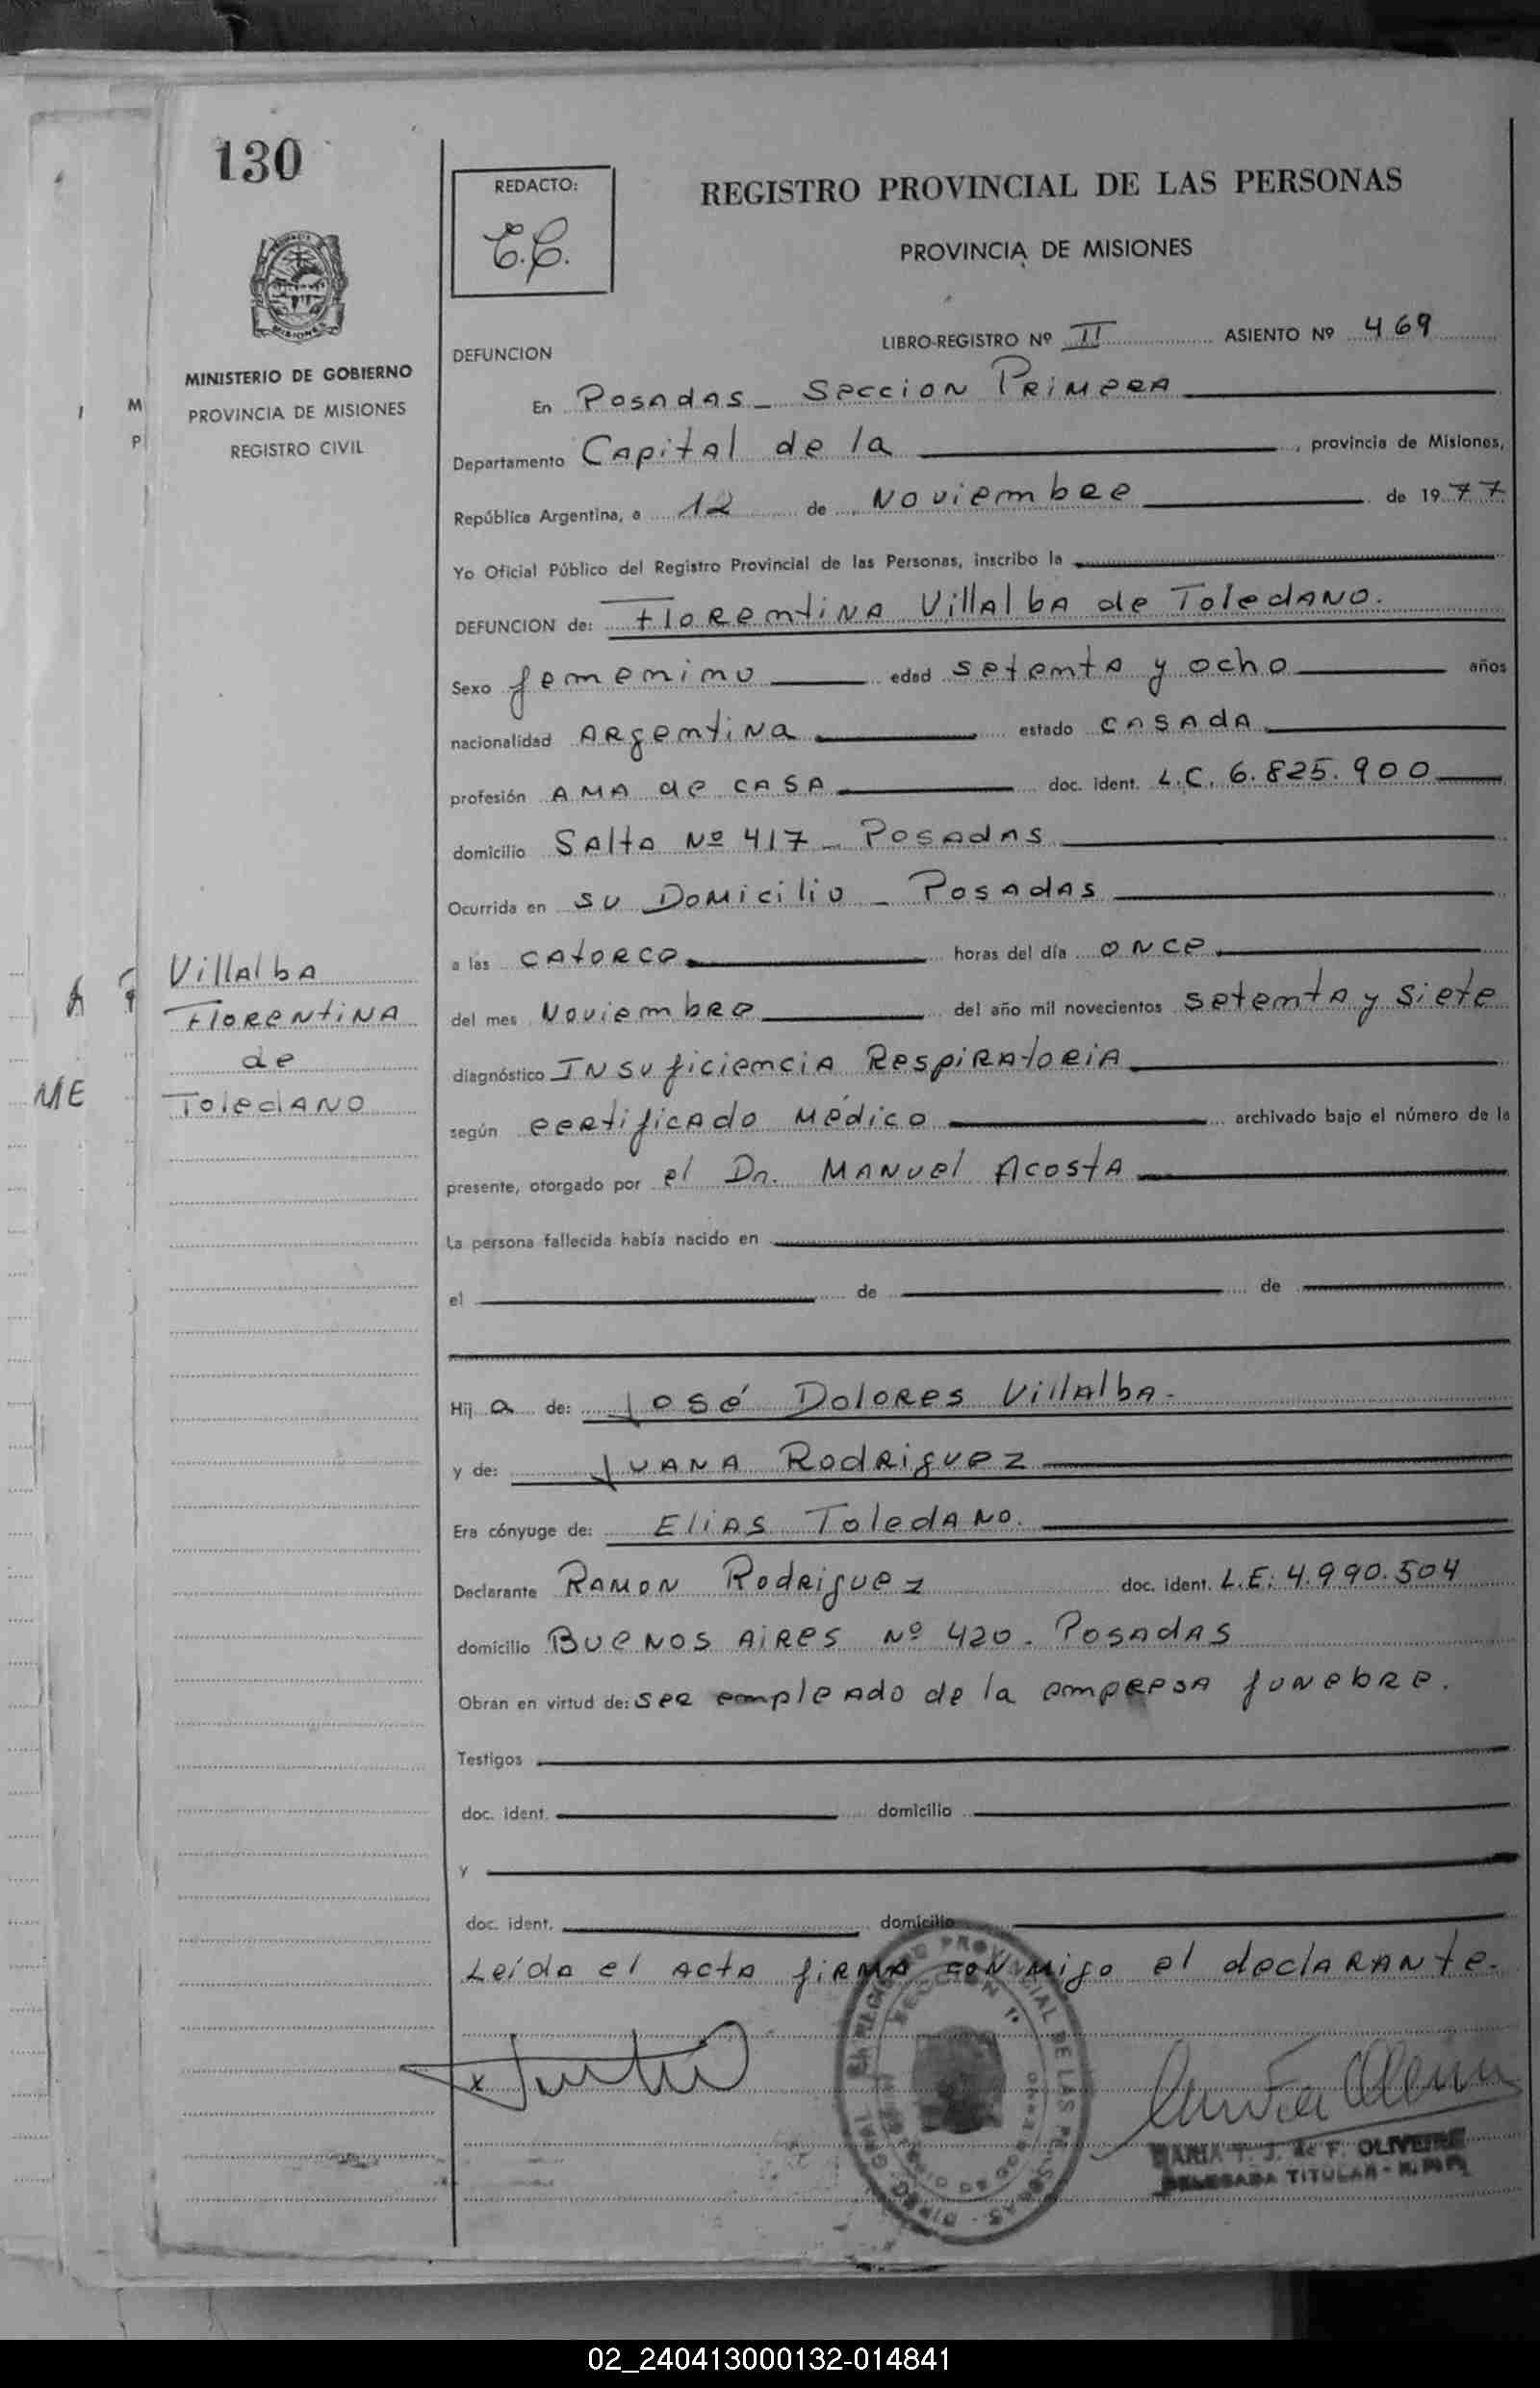 130
REDACTO:
C.C.
REGISTRO PROVINCIAL DE LAS PERSONAS
PROVINCIA DE MISIONES
MISIONES
MINISTERIO DE GOBIERNO
PROVINCIA DE MISIONES
REGISTRO CIVIL
M
P
DEFUNCION
LIBRO-REGISTRO Nº II ASIENTO Nº 469
En Posadas - Seccion Primera
Departamento Capital de la , provincia de Misiones,
República Argentina, a 12 de Noviembre de 1977
Yo Oficial Público del Registro Provincial de las Personas, inscribo la
DEFUNCION de: Florentina Villalba de Toledano.
Sexo femenino edad setenta y ocho años
nacionalidad Argentina estado casada
profesión Ama de casa doc. ident. L.C. 6.825.900
domicilio Salta Nº 417 - Posadas
Ocurrida en su Domicilio - Posadas
a las catorce horas del día once
del mes Noviembre del año mil novecientos setenta y siete
diagnóstico Insuficiencia Respiratoria
según certificado Médico archivado bajo el número de la
presente, otorgado por el Dr. Manuel Acosta
La persona fallecida había nacido en
el de de
Hij a de: José Dolores Villalba.-
y de: Juana Rodriguez
Era cónyuge de: Elias Toledano.
Declarante Ramon Rodriguez doc. ident. L.E: 4.990.504
domicilio Buenos Aires Nº 420. Posadas
Obran en virtud de: ser empleado de la empresa funebre.
Testigos
doc. ident. domicilio
y
doc. ident. domicilio
Leída el acta firma conmigo el declarante.-
Villalba
Florentina
de
Toledano
ME
REGISTRO PROVINCIAL DE LAS PERSONAS
SECCION 1ª
MARIA T. J. de F. OLIVEIRA
DELEGADA TITULAR - R.P.P.
02_240413000132-014841